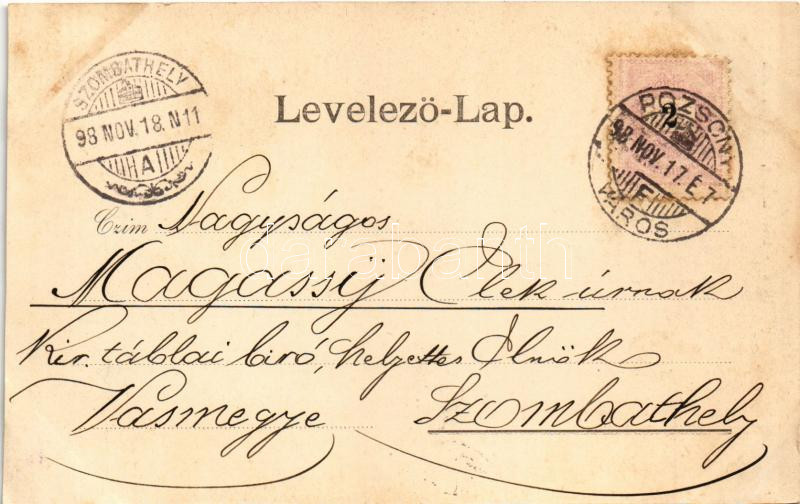 SZOMBATHELY
98 NOV. 18. N 11
A
Levelezö-Lap.
2
POZSONY
98 NOV. 17. E. 7
F
VÁROS
Czim Nagyságos
Magassÿ Elek úrnak
Kir. táblai biró, helyettes Elnök
Vasmegye Szombathely
darabanth